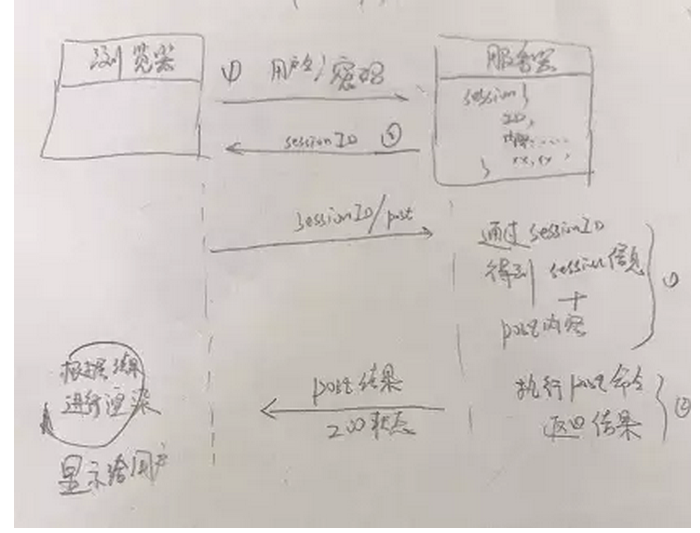 浏览器
① 用户名/密码
服务器
session {
ID,
内容.....
xx, xx,
}
sessionID ②
sessionID/post
通过sessionID
得到session信息
+
post内容
①
根据结果
进行渲染
显示给用户
post结果
200状态
执行post命令
返回结果
②